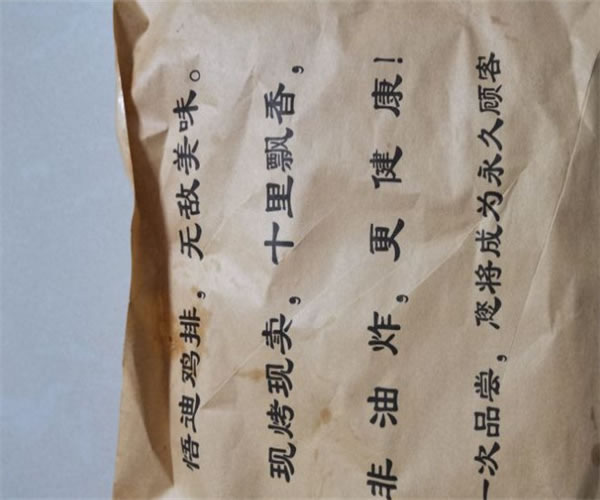 悟迪鸡排，无敌美味。
现烤现卖，十里飘香，
非油炸，更健康！
一次品尝，您将成为永久顾客